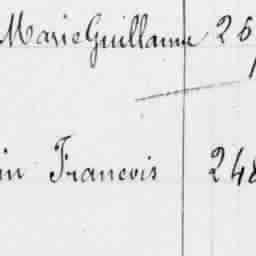 Marie Guillaume 25
in François 248